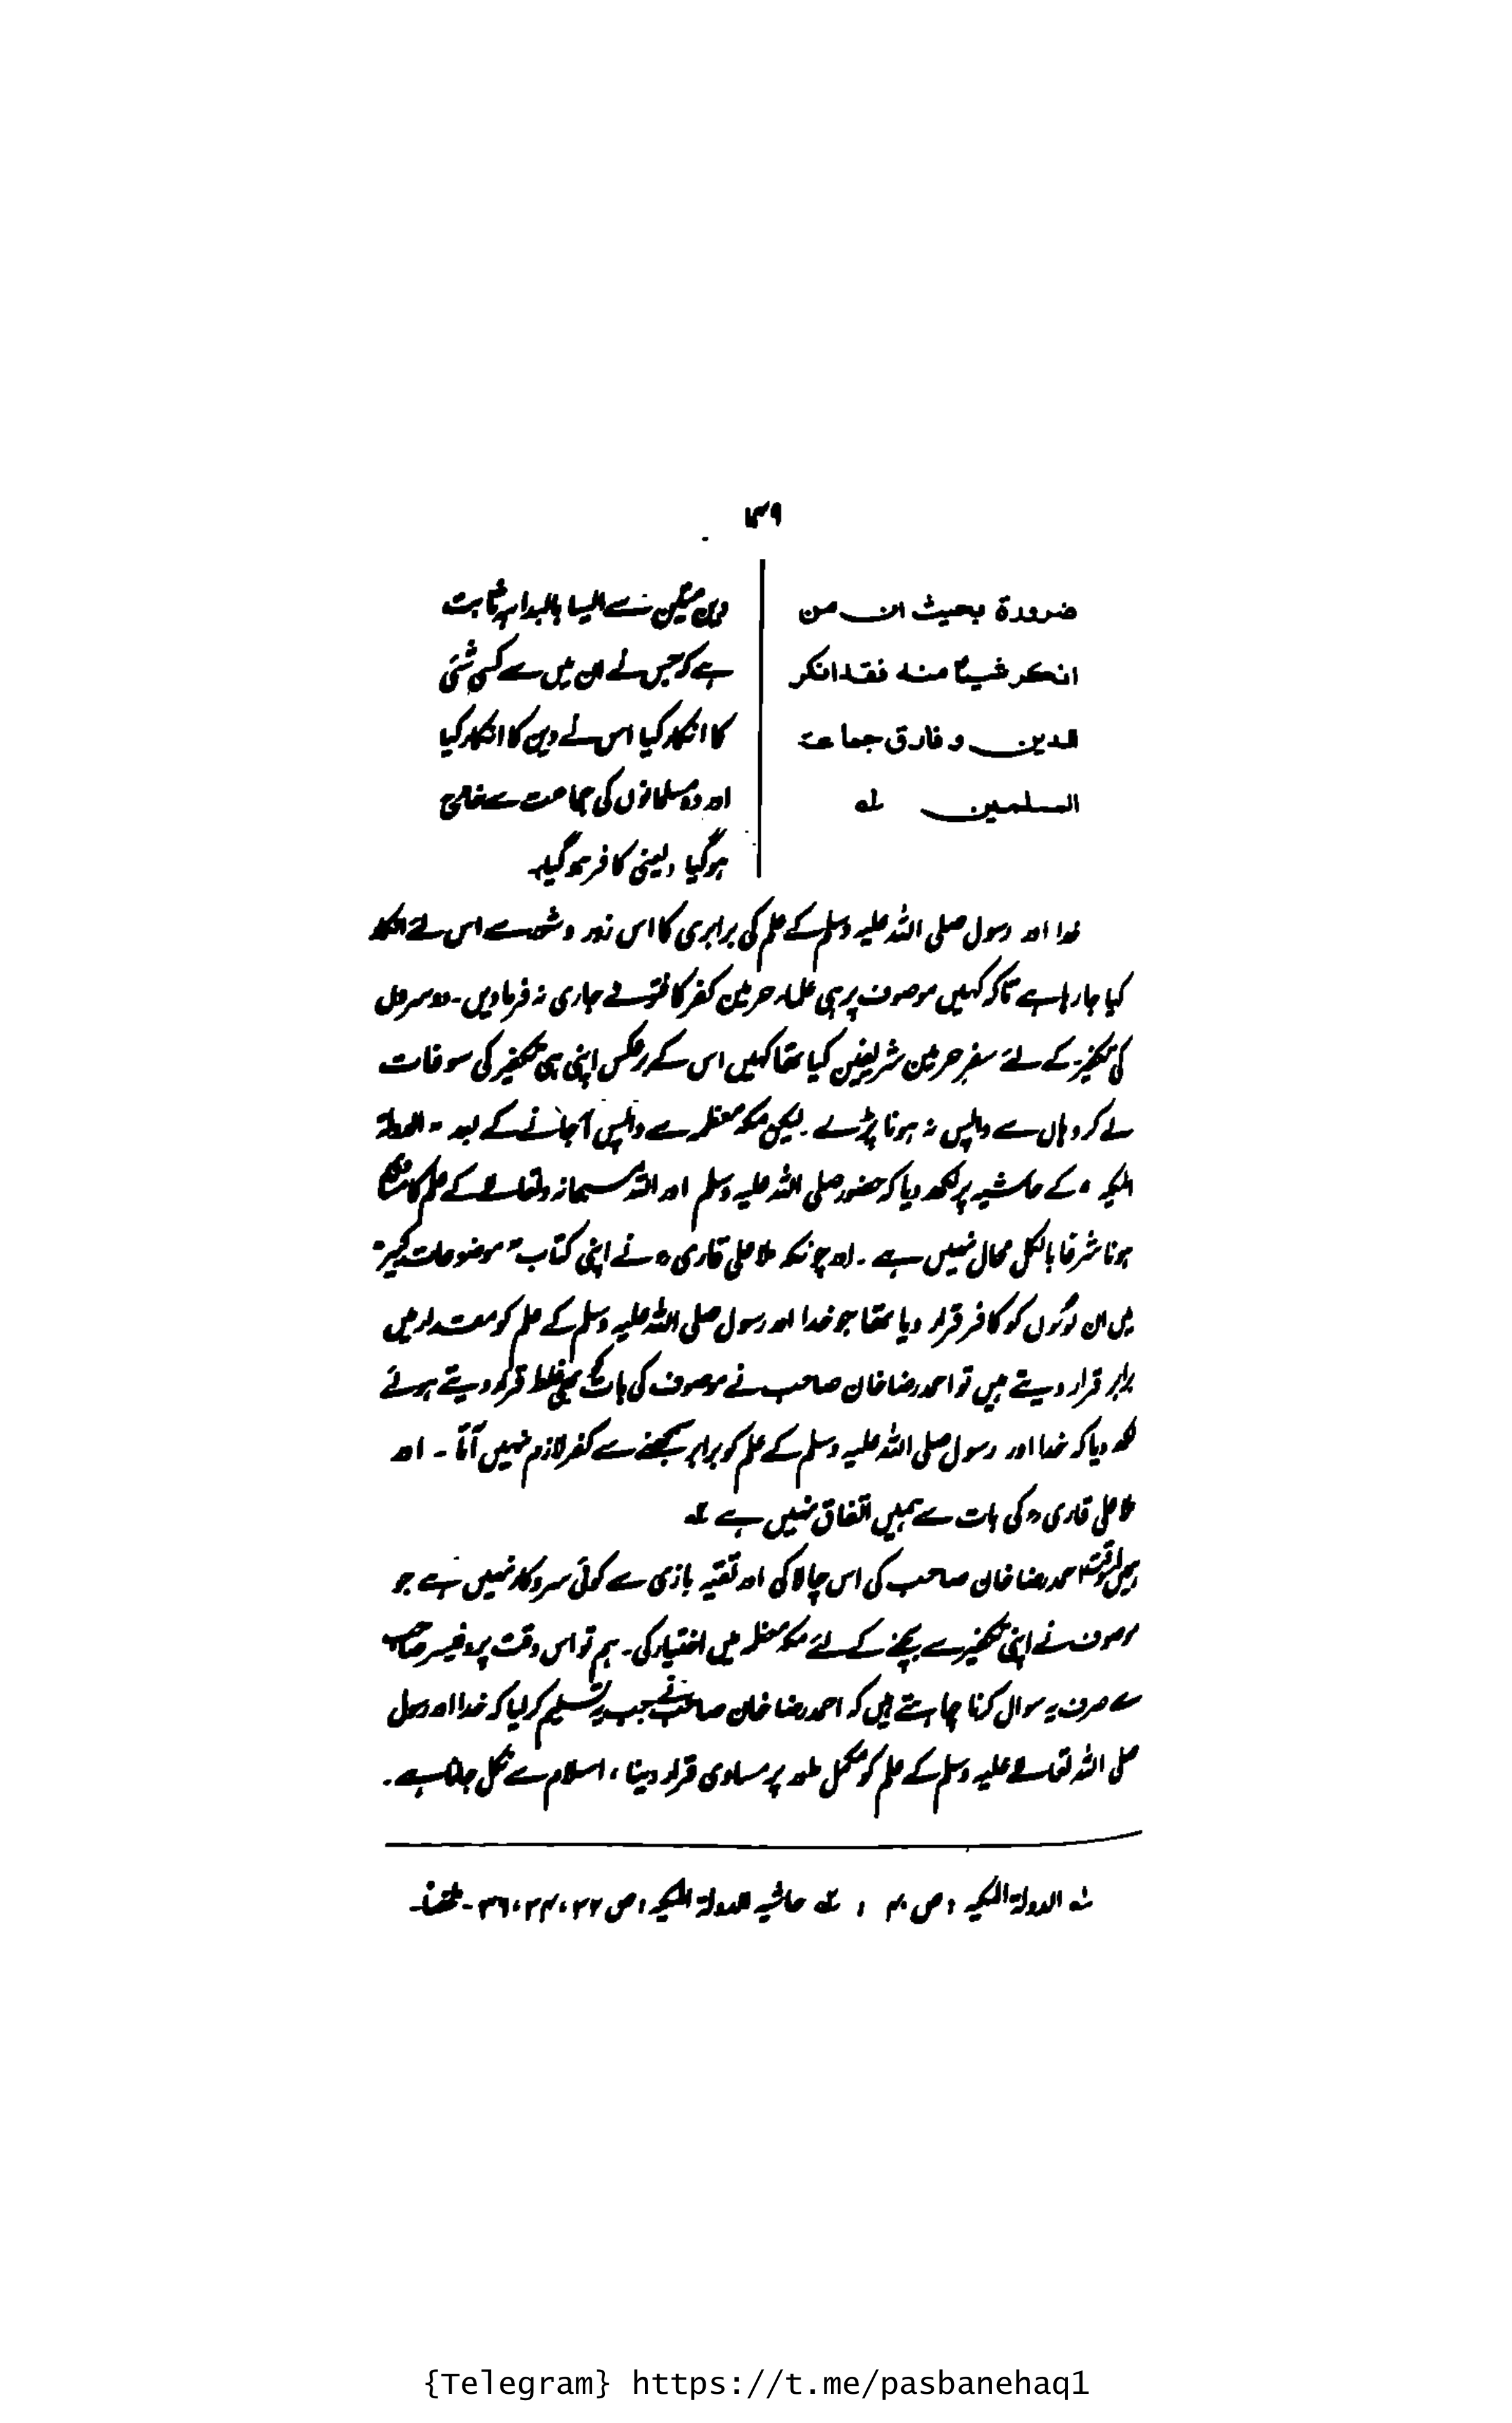 ۳۹
ضرورة بحیث ان من
انکر شیئا منه فقد انکر
الدین و فارق جماعة
المسلمین لہ
دین متین سے ایسا بالبداہہ ثابت
ہے کہ جس نے ان میں سے کسی شئی
کا انکار کیا اس نے دین کا انکار کیا
اور وہ مسلمانوں کی جماعت سے خارج
ہوگیا، یعنی کافر ہوگیا۔
خدا اور رسول صلی اللہ علیہ وسلم کے علم کی برابری کا اس زور و شور سے اس لئے انکار
کیا جا رہا ہے تاکہ کہیں موصوف پر ہی علماء حرمین کفر کا فتوےٰ جاری نہ فرما دیں۔ دوسروں
کی تکفیر کے لئے سفر حرمین شریفین کیا تھا کہیں اس کے برعکس اپنی ہی تکفیر کی سوغات
لے کر وہاں سے واپس نہ ہونا پڑے۔ لیکن مکہ معظمہ سے واپس آجانے کے بعد "الدولۃ
المکیہ" کے حاشیہ پر لکھ دیا کہ حضور صلی اللہ علیہ وسلم اور اللہ سبحانہ وتعالےٰ کے علم کا
ہونا شرعا بالکل محال نہیں ہے۔ اور چونکہ ملا علی قاری ؒ نے اپنی کتاب "موضوعات کبیر"
میں ان لوگوں کو کافر قرار دیا تھا جو خدا اور رسول صلی اللہ علیہ وسلم کے علم کو مقدار میں
برابر قرار دیتے ہیں تو احمد رضا خان صاحب نے موصوف کی بات کو بھی غلط قرار دیتے ہوئے
لکھ دیا کہ خدا اور رسول صلی اللہ علیہ وسلم کے علم کو برابر سمجھنے سے کفر لازم نہیں آتا۔ اور
ملا علی قاری ؒ کی بات سے ہمیں اتفاق نہیں ہے ۲ہ
ہمیں اس وقت احمد رضا خان صاحب کی اس چالاکی اور تقیہ بازی سے کوئی سروکار نہیں ہے جو
موصوف نے اپنی تکفیر سے بچنے کے لئے مکہ معظمہ میں اختیار کی۔ ہم تو اس وقت پروفیسر صاحب
سے صرف یہ سوال کرنا چاہتے ہیں کہ احمد رضا خان صاحب نے جب یہ تسلیم کر لیا کہ خدا اور رسول
صلی اللہ تعالےٰ علیہ وسلم کے علم کو مکمل طور پر مساوی قرار دینا، اسلام سے نکل جانا ہے۔
لہ الدولۃ المکیہ، ص ۴۰، ۲ہ حاشیہ الدولۃ المکیہ، ص ۳۲، ۳۴، ۳۶۔ ملخصاً۔
{Telegram} https://t.me/pasbanehaq1